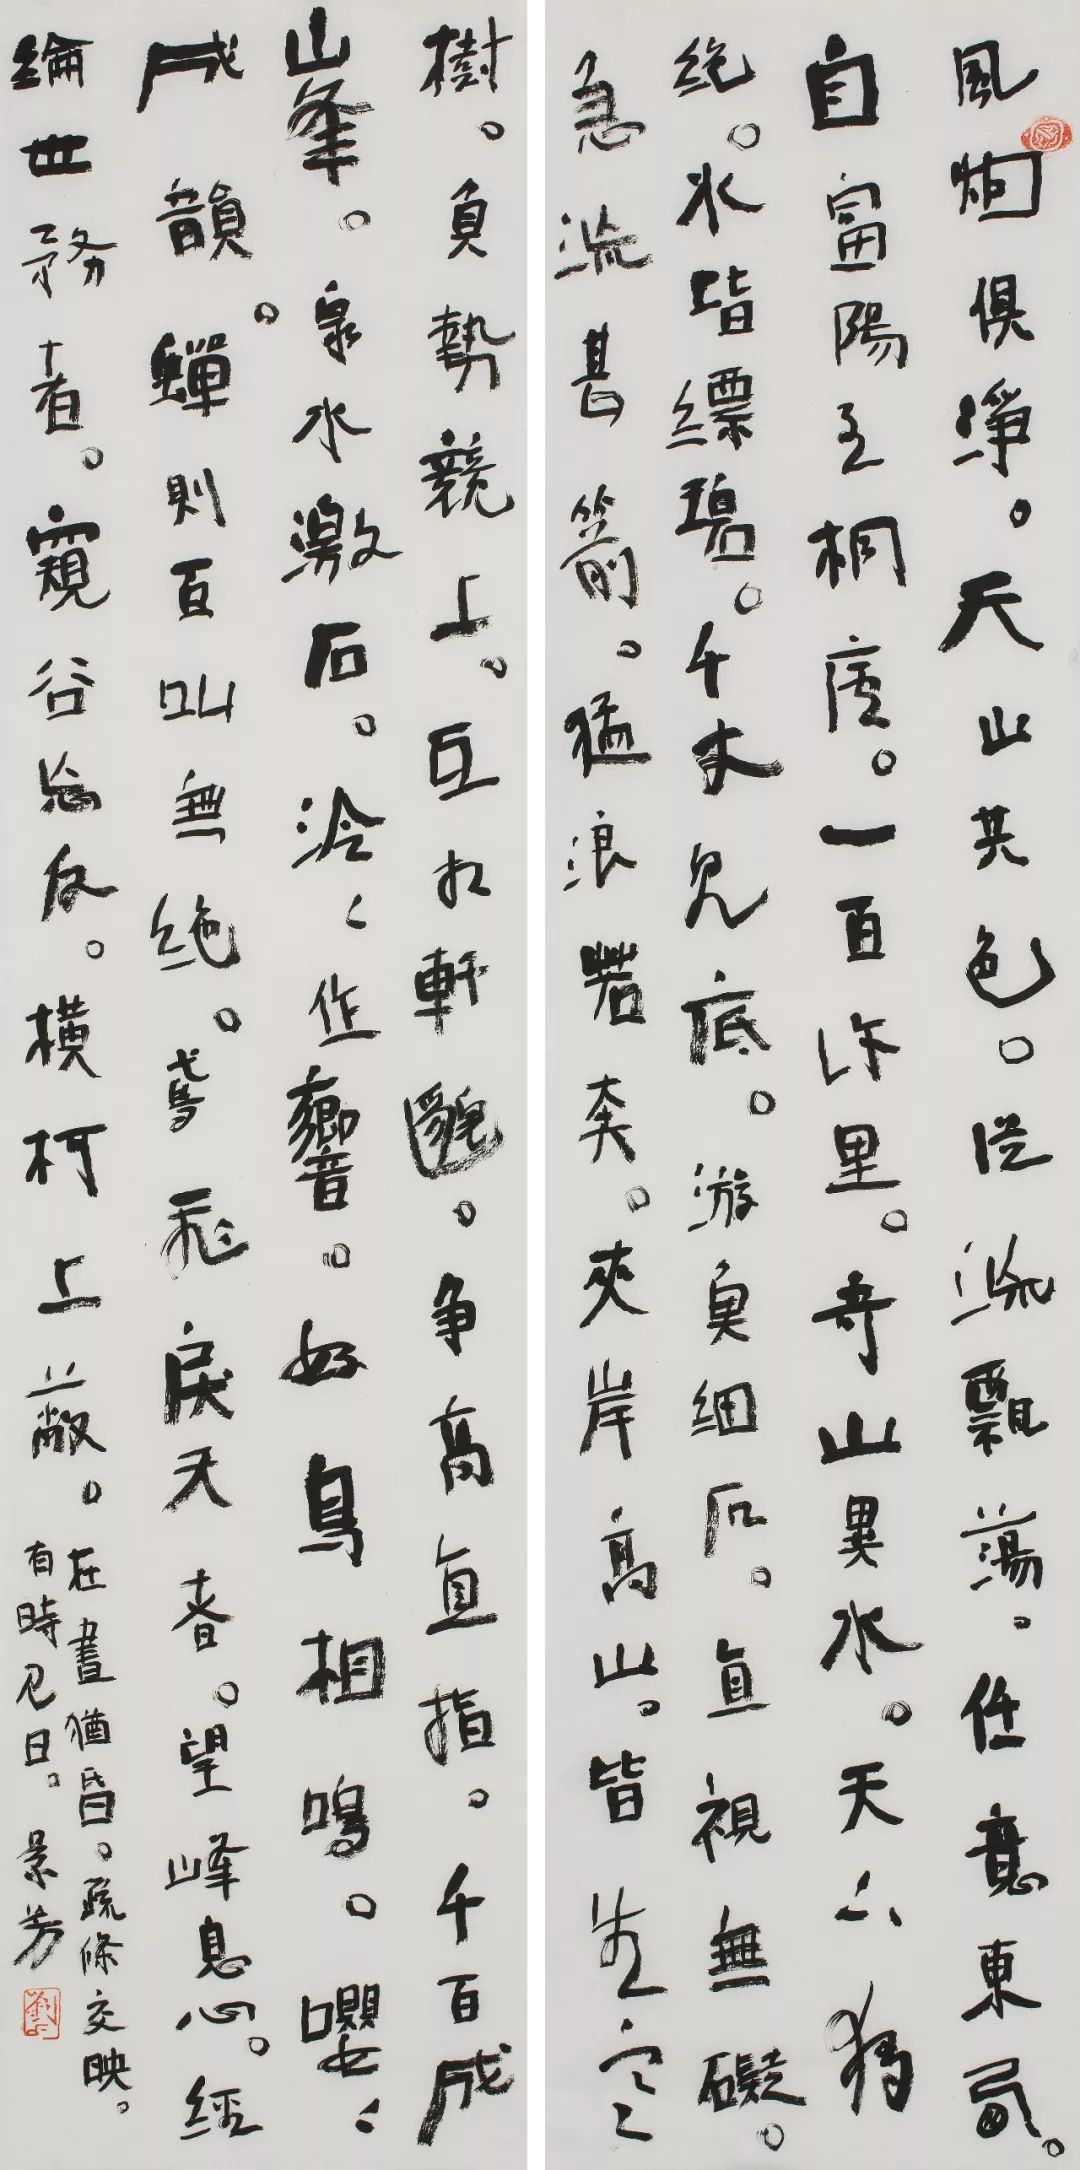 風烟俱淨。天山共色。從流飄蕩。任意東西。
自富陽至桐廬。一百許里。奇山異水。天下獨
絶。水皆縹碧。千丈見底。游魚細石。直視無礙。
急流甚箭。猛浪若奔。夾岸高山。皆生寒
樹。負勢競上。互相軒邈。争高直指。千百成
山峯。泉水激石。泠〻作響。好鳥相鳴。嚶〻
成韻。蟬則百叫無絶。鳶飛戾天者。望峰息心。經
綸世務者。窺谷忘反。橫柯上蔽。
在晝猶昏。疏條交映。
有時見日。景芳